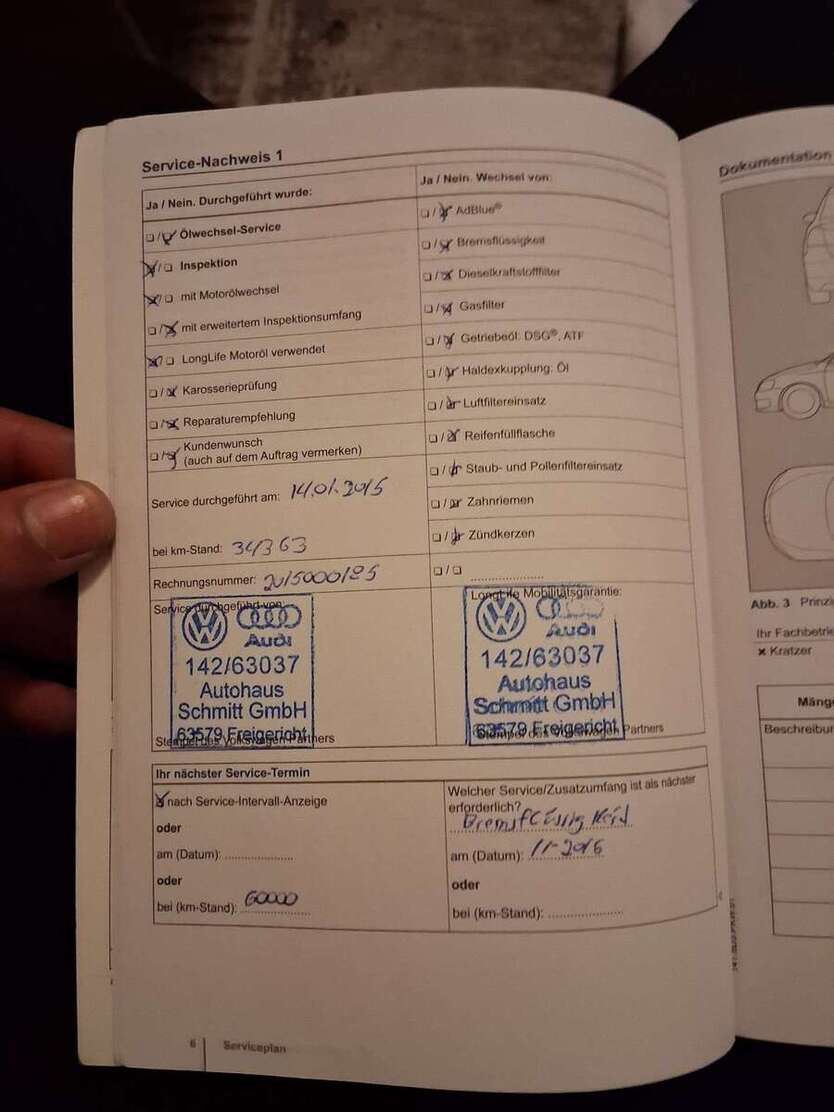 Service-Nachweis 1
Ja / Nein. Durchgeführt wurde:
❏ / ❏ Ölwechsel-Service
❏ / ❏ Inspektion
❏ / ❏ mit Motorölwechsel
❏ / ❏ mit erweitertem Inspektionsumfang
❏ / ❏ LongLife Motoröl verwendet
❏ / ❏ Karosserieprüfung
❏ / ❏ Reparaturempfehlung
❏ / ❏ Kundenwunsch
(auch auf dem Auftrag vermerken)
Service durchgeführt am: 14.01.2015
bei km-Stand: 34363
Rechnungsnummer: 2015000185
Ja / Nein. Wechsel von:
❏ / ❏ AdBlue®
❏ / ❏ Bremsflüssigkeit
❏ / ❏ Dieselkraftstofffilter
❏ / ❏ Gasfilter
❏ / ❏ Getriebeöl: DSG®, ATF
❏ / ❏ Haldexkupplung: Öl
❏ / ❏ Luftfiltereinsatz
❏ / ❏ Reifenfüllflasche
❏ / ❏ Staub- und Pollenfiltereinsatz
❏ / ❏ Zahnriemen
❏ / ❏ Zündkerzen
❏ / ❏ ....................
Service durchgeführt von:
Audi
142/63037
Autohaus
Schmitt GmbH
63579 Freigericht
Stempel des Volkswagen Partners
LongLife Mobilitätsgarantie:
Audi
142/63037
Autohaus
Schmitt GmbH
63579 Freigericht
Stempel des Volkswagen Partners
Ihr nächster Service-Termin
❏ nach Service-Intervall-Anzeige
oder
am (Datum): ....................
oder
bei (km-Stand): 60000
Welcher Service/Zusatzumfang ist als nächster
erforderlich?
Bremsflüssigkeit
am (Datum): 11-2016
oder
bei (km-Stand): ....................
6 Serviceplan
Dokumentation
Abb. 3
Ihr
× Kratzer